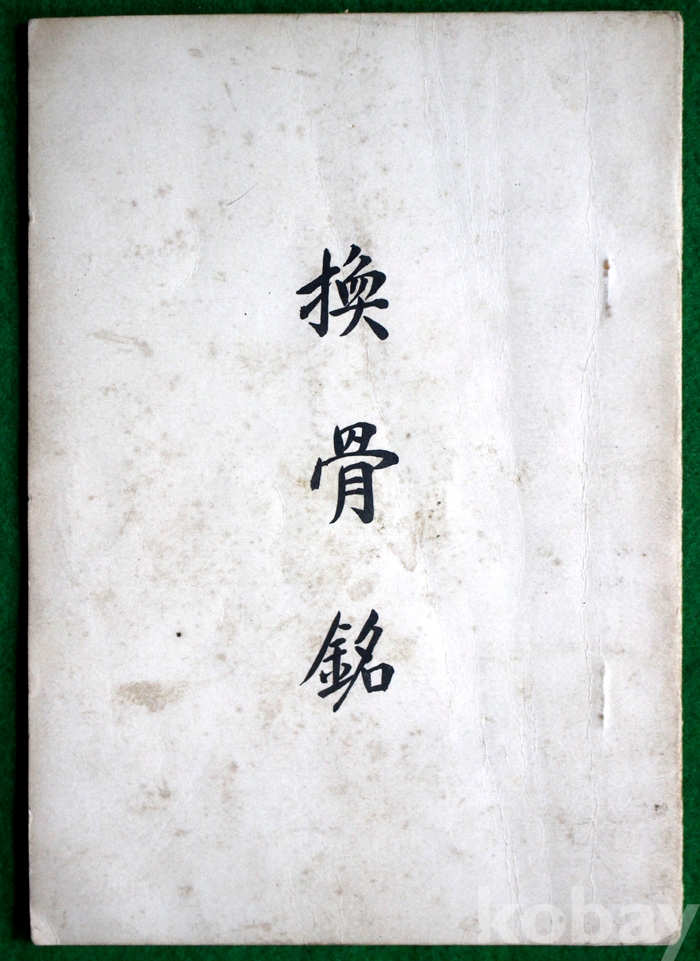 換骨銘
kobay